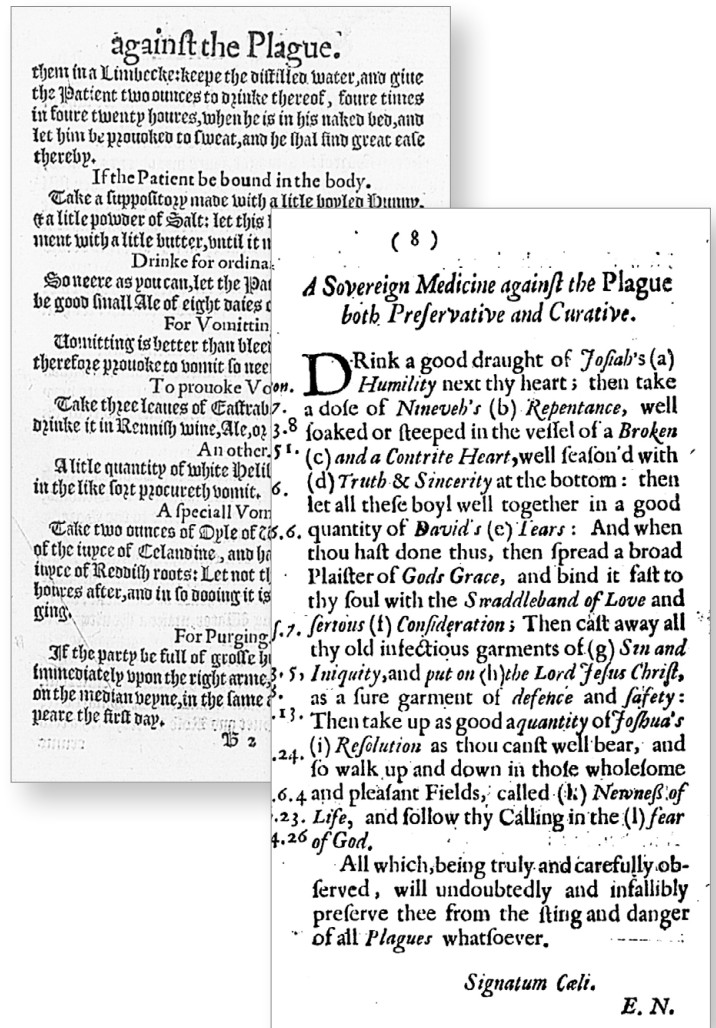 againſt the Plague.
them in a Limbecke: keepe the diſtilled water, and giue
the Patient two ounces to drinke thereof, foure times
in foure twenty houres, when he is in his naked bed, and
let him be prouoked to ſweat, and he ſhal find great eaſe
thereby.
If the Patient be bound in the body.
Take a ſuppoſitory made with a litle boyled Hunny,
& a litle powder of Salt: let this
ment with a litle butter, vntil it
Drinke for
So neere as you can, let the
be good ſmall Ale of eight daies
For
Uomitting is better than
therefore prouoke to vomit ſo
To prouoke
Take three leaues of
drinke it in Renniſh wine, Ale, or
An other.
A litle quantity of white
in the like ſort procureth vomit.
A ſpeciall
Take two ounces of Oyle of
of the iuyce of Celandine, and
iuyce of Reddiſh roots: Let not
houres after, and in ſo dooing it is
ging.
For Purging
If the party be full of groſſe
immediately vpon the right arme,
on the median veyne, in the ſame
peare the firſt day.
B 2
( 8 )
A Sovereign Medicine againſt the Plague
both Preſervative and Curative.
DRink a good draught of Joſiah's (a)
on. Humility next thy heart; then take
7. a doſe of Nineveh's (b) Repentance, well
3.8 ſoaked or ſteeped in the veſſel of a Broken
51. (c) and a Contrite Heart, well ſeaſon'd with
6. (d) Truth & Sincerity at the bottom: then
let all theſe boyl well together in a good
6.6. quantity of David's (e) Tears: And when
thou haſt done thus, then ſpread a broad
Plaiſter of Gods Grace, and bind it faſt to
thy ſoul with the Swaddleband of Love and
5.7. ſerious (f) Conſideration; Then caſt away all
thy old infectious garments of (g) Sin and
3.5, Iniquity, and put on (h) the Lord Jeſus Chriſt,
as a ſure garment of defence and ſafety:
.13. Then take up as good a quantity of Joſhua's
(i) Reſolution as thou canſt well bear, and
.24. ſo walk up and down in thoſe wholeſome
.6.4 and pleaſant Fields, called (k) Newneß of
.23. Life, and follow thy Calling in the (l) fear
4.26 of God.
All which, being truly and carefully ob-
ſerved, will undoubtedly and infallibly
preſerve thee from the ſting and danger
of all Plagues whatſoever.
Signatum Cœli.
E. N.